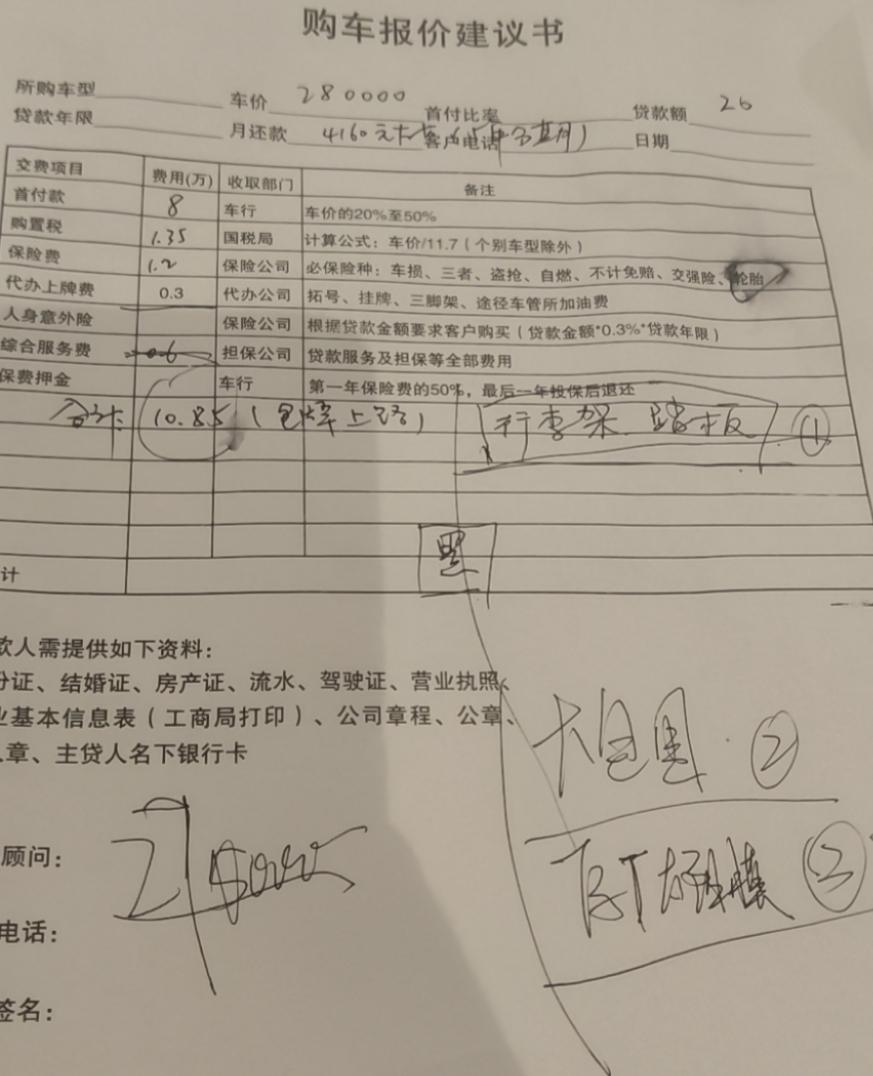 购车报价建议书
所购车型 车价 280000 首付比率 贷款额 26
贷款年限 月还款 4160元 客户电话 日期
交费项目 费用(万) 收取部门 备注
首付款 8 车行 车价的20%至50%
购置税 1.35 国税局 计算公式：车价/11.7（个别车型除外）
保险费 1.2 保险公司 必保险种：车损、三者、盗抢、自燃、不计免赔、交强险、轮胎
代办上牌费 0.3 代办公司 拓号、挂牌、三脚架、途径车管所加油费
人身意外险 保险公司 根据贷款金额要求客户购买（贷款金额*0.3%*贷款年限）
综合服务费 担保公司 贷款服务及担保等全部费用
保费押金 车行 第一年保险费的50%，最后一年投保后退还
合计 10.85（包牌上路） 行李架 踏板 ①
黑
计
款人需提供如下资料：
份证、结婚证、房产证、流水、驾驶证、营业执照、
业基本信息表（工商局打印）、公司章程、公章、
人章、主贷人名下银行卡
大包围 ②
顾问：
③
电话：
签名：